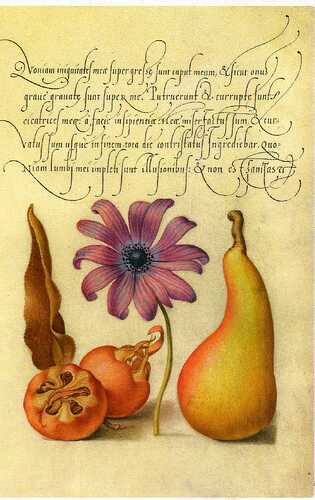 Quoniam iniquitates meæ supergressæ sunt caput meum, & sicut onus
graue grauatæ sunt super me. Putruerunt & corruptæ sunt
cicatrices meæ, a facie insipientiæ meæ. miser factus sum, & cur-
uatus sum usque in finem: tota die contristatus ingrediebar. Quo-
niam lumbi mei impleti sunt illusionibus: & non est sanitas